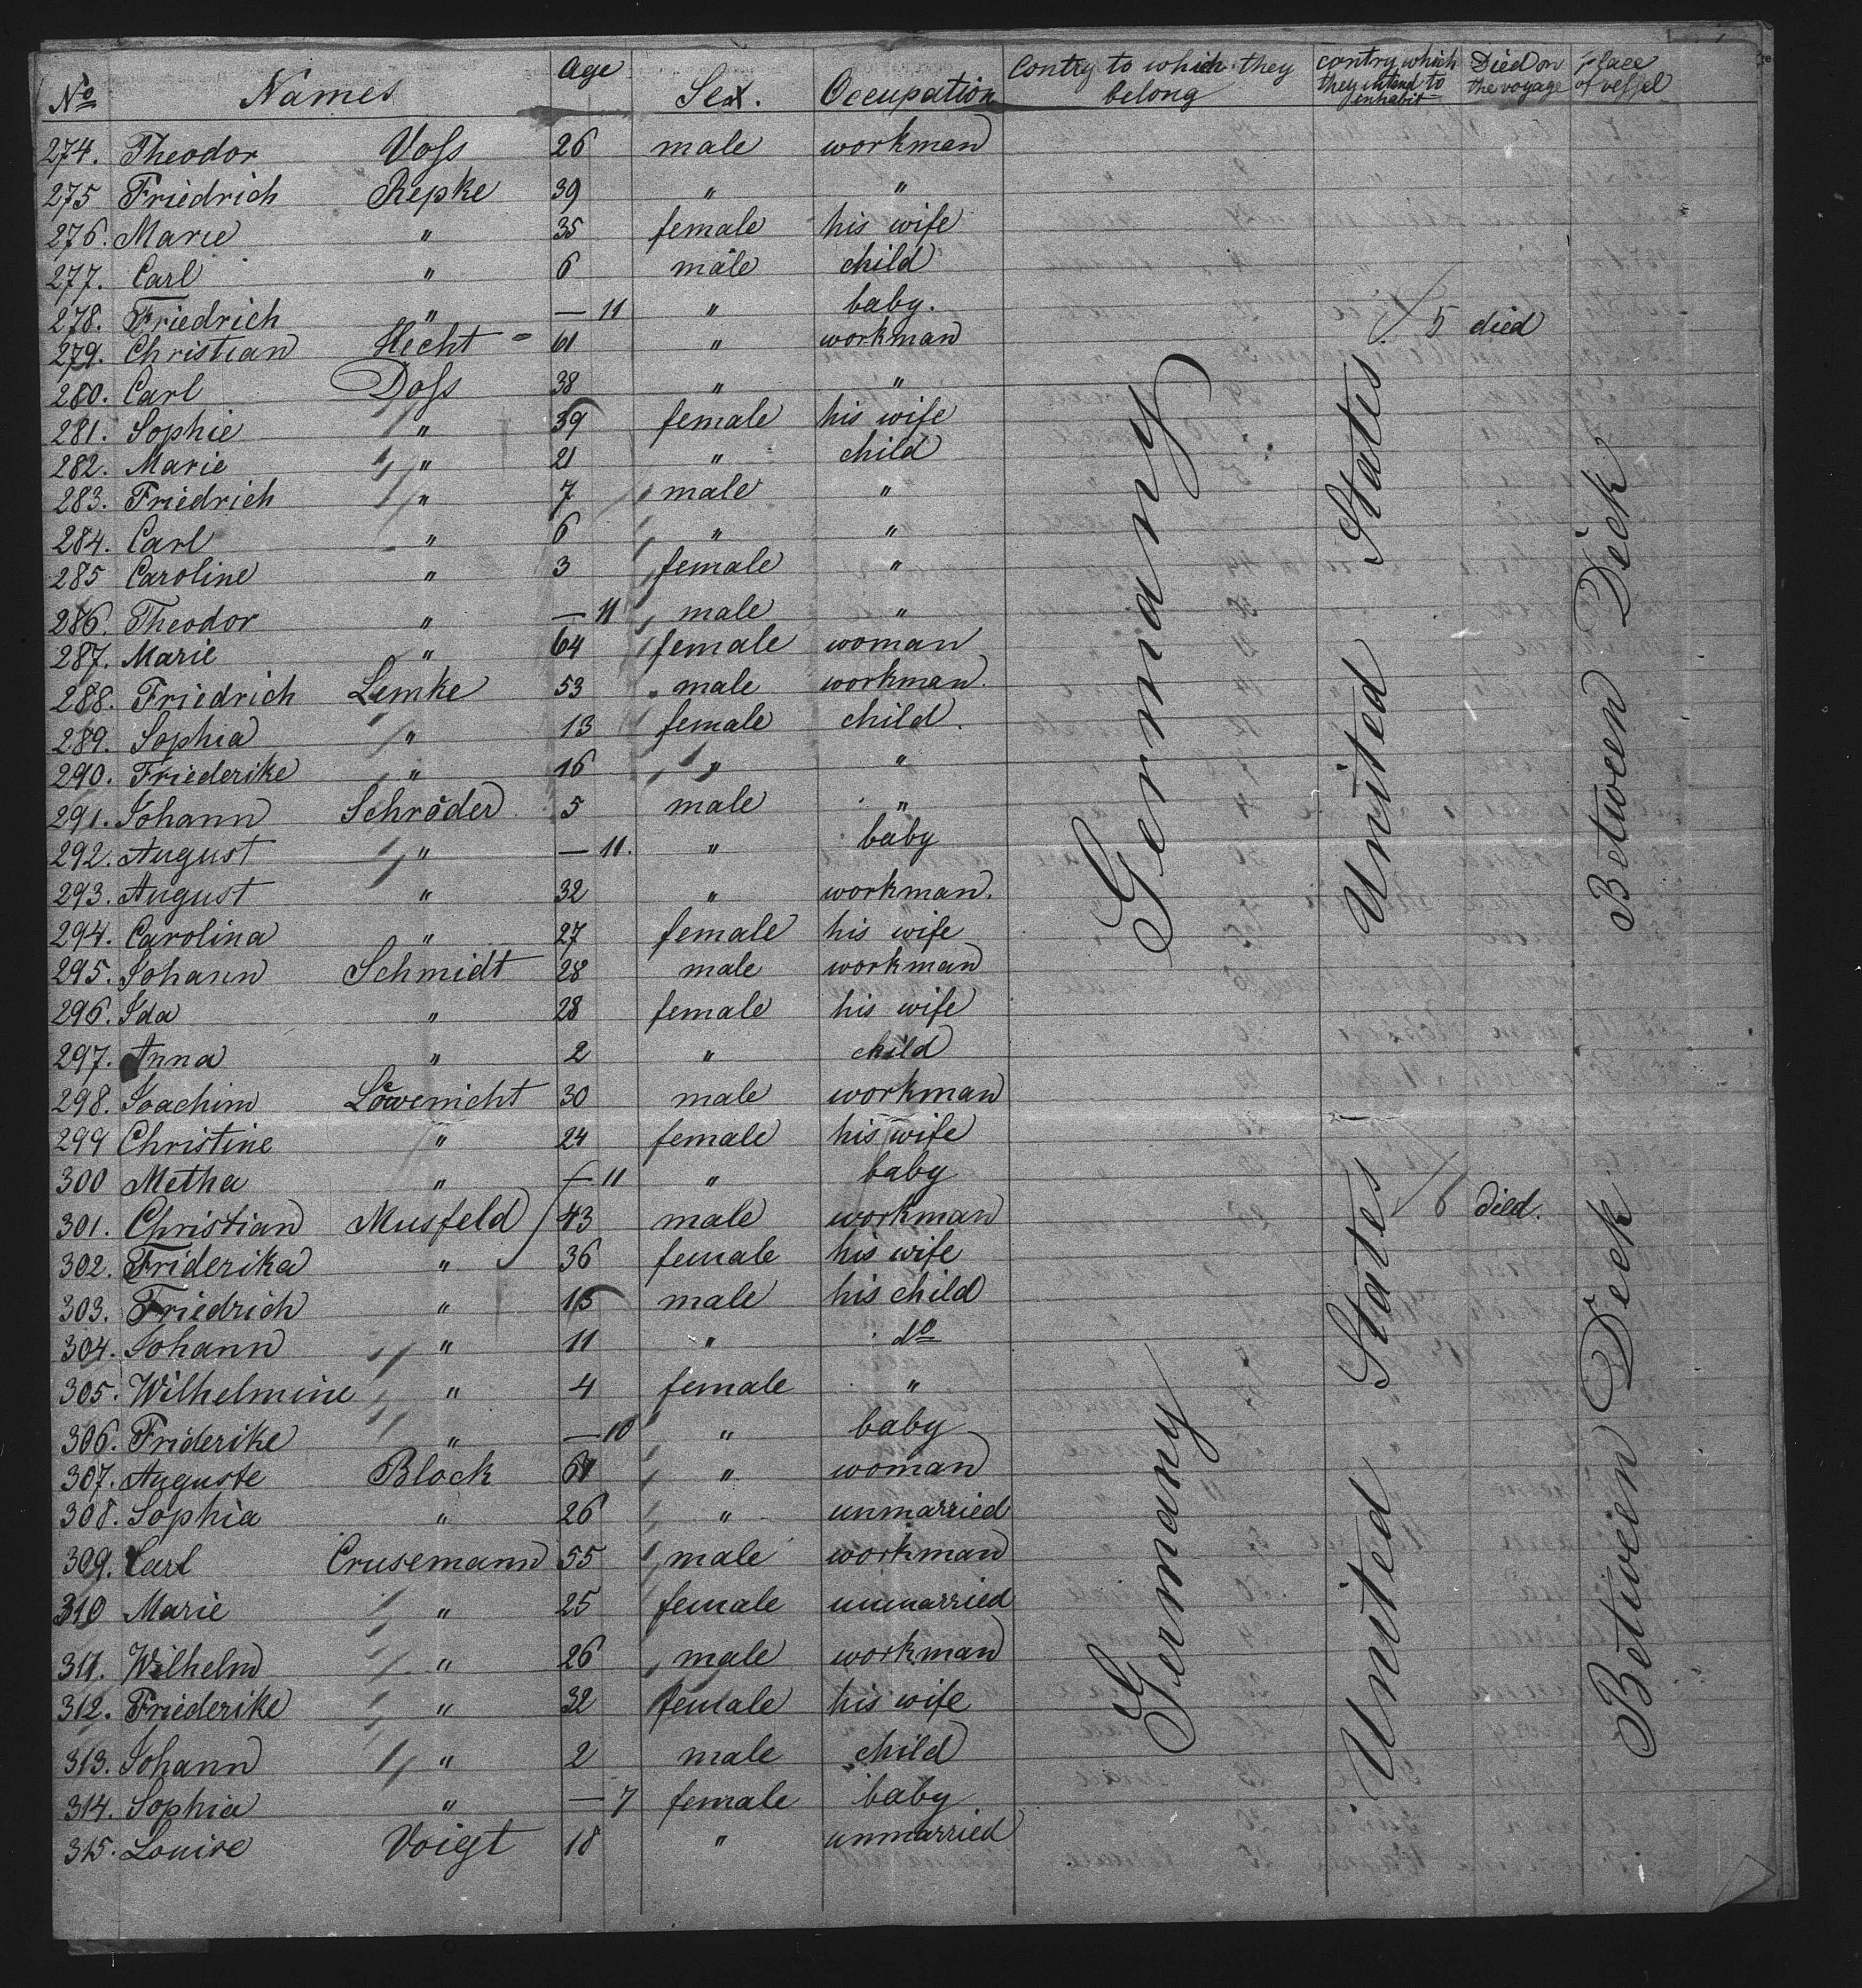 No Names Age Sex. Occupation Contry to which they belong contry which they intend to inhabit Died on the voyage place of vessel
274. Theodor Voss 26 male workman
275 Friedrich Repke 39 " "
276. Marie " 35 female his wife
277. Carl " 6 male child
278. Friedrich " — 11 " baby.
279. Christian Hecht 61 " workman 5 died
280. Carl Doss 38 " "
281. Sophie " 39 female his wife
282. Marie " 21 " child
283. Friedrich " 7 male "
284. Carl " 6 " "
285 Caroline " 3 female "
286. Theodor " — 11 male "
287. Marie " 64 female woman
288. Friedrich Lemke 53 male workman.
289. Sophia " 13 female child.
290. Friederike " 16 " "
291. Johann Schröder 5 male "
292. August " — 11. " baby
293. August " 32 " workman.
294. Carolina " 27 female his wife
295. Johann Schmidt 28 male workman
296. Ida " 28 female his wife
297. Anna " 2 " child
298. Joachim Löwenicht 30 male workman
299 Christine " 24 female his wife
300 Metha " — 11 " baby
301. Christian Musfeld 43 male workman 6 died.
302. Friderika " 36 female his wife
303. Friedrich " 15 male his child
304. Johann " 11 " do
305. Wilhelmine " 4 female "
306. Friderike " — 10 " baby
307. Auguste Block " woman
308. Sophia " 26 " unmarried
309. Carl Crusemann 55 male workman
310 Marie " 25 female unmarried
311. Wilhelm " 26 male workman
312. Friederike " 32 female his wife
313. Johann " 2 male child
314. Sophia " — 7 female baby
315. Louise Voigt 18 " unmarried
Germany
United States
Between Deck
Germany
United States
Between Deck